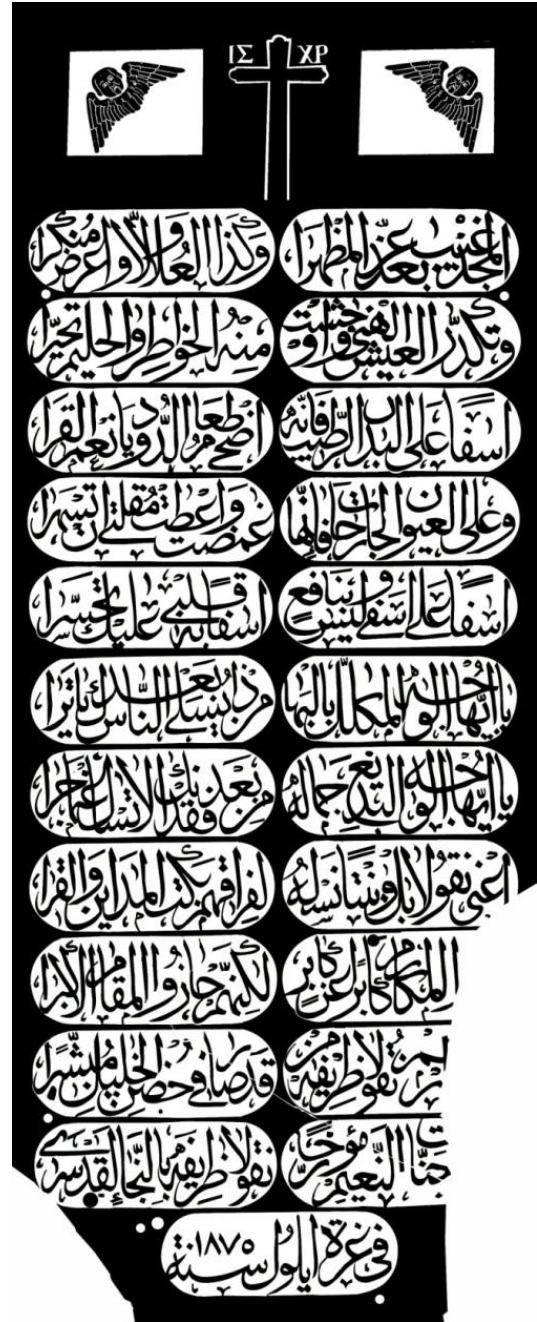 ΙΣ ΧΡ
المجد غيب بعد عز المظهرا وكذا العُلا ولّا واعرض منكرا
وتكدّر العيش الهني وتشوشت منهُ الخواطر والحليم تحيّرا
اسفًا على البدن الرطيب فانّهُ اضحى طعام الدود يا نعم القرا
وعلى العيون الجارحات فانّها غمضت واعطت مُقلتي ان تسهرا
اسفًا على اسفي وليس بنافع اسفا به قلبي عليك تحسّرا
يا ايّها الوجه المكلّل بالبها من ذا يسلي النّاس بعدك يا ترا
يا ايّها الوجه البديع جمالهُ من بعد فقدك لا تسل عمّا جرا
اعني نقولا نسله لفراقهم بكت المداين والقرا
المكارم كابرًا عن كابر لكنّهم حازوا المقام الاكبرا
نقولا طريفه من قد صار في حضن الخليل مبشّرا
جنات النعيم مؤرخًا نقولا طريفه بالنجا
في غرة ايلول سنة ١٨٧٥